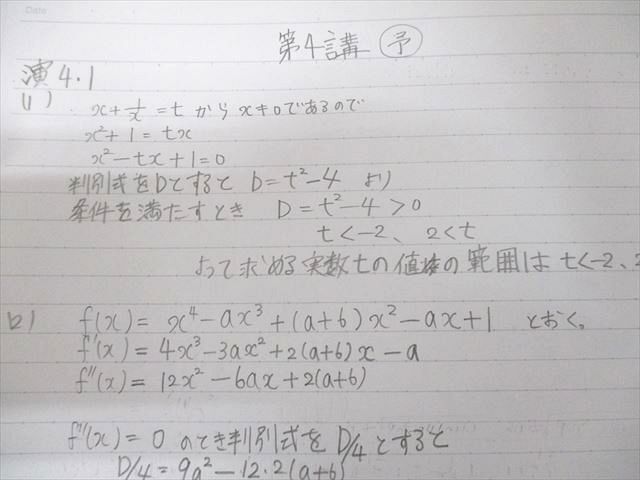 Date
第4講 予
演4.1
(1) x+1/x=t から x≠0であるので
x²+1=tx
x²-tx+1=0
判別式をDとすると D=t²-4 より
条件を満たすとき D=t²-4>0
t<-2、2<t
よって求める実数tの値の範囲は t<-2、2
(2) f(x)=x⁴-ax³+(a+6)x²-ax+1 とおく。
f'(x)=4x³-3ax²+2(a+6)x-a
f''(x)=12x²-6ax+2(a+6)
f''(x)=0 のとき判別式を D/4 とすると
D/4=9a²-12・2(a+6)